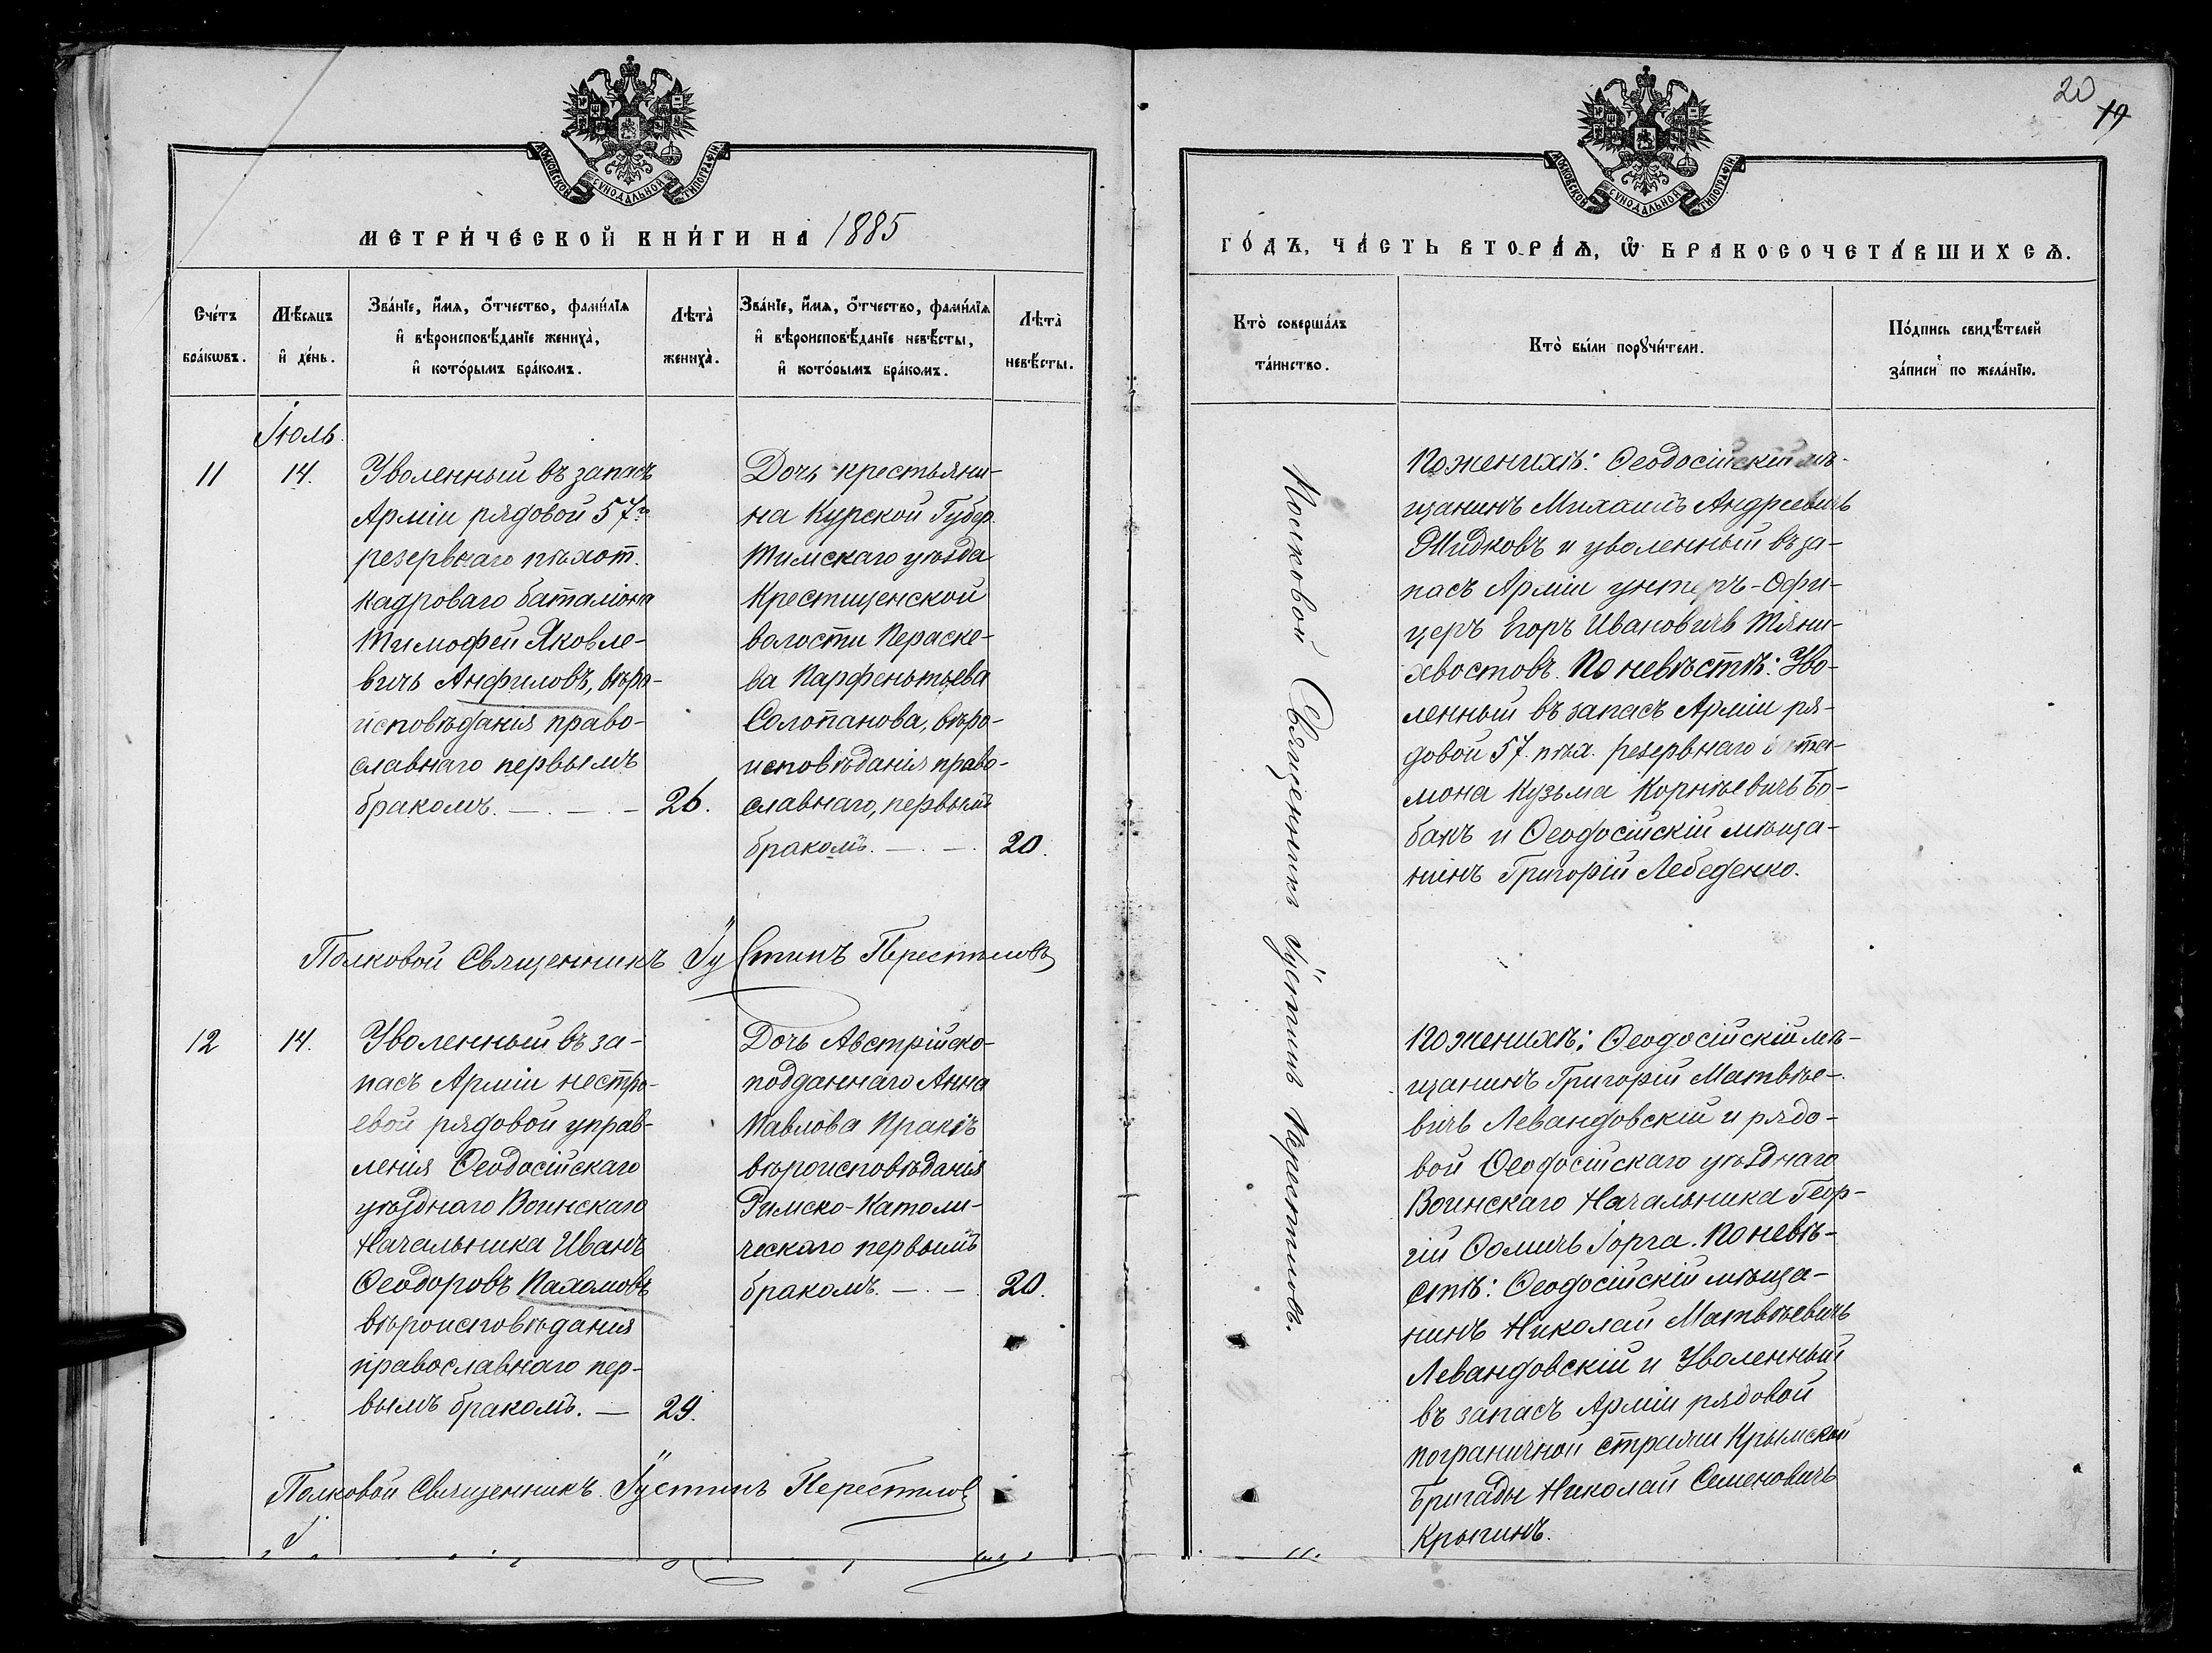 МОСКОВСКОЙ СУНОДАЛЬНОЙ ТИПОГРАФІИ
МЕТРИ́ЧЕСКОЙ КНИ́ГИ НА 1885
Сче́тъ бра́кѡвъ.
Мѣ́сяцъ и҆ де́нь.
Зва́нїе, и҆́мя, о҆́тчество, фами́лїя и҆ вѣроисповѣ́данїе жениха̀, и҆ кото́рымъ бра́комъ.
Лѣта̀ жениха̀.
Зва́нїе, и҆́мя, о҆́тчество, фами́лїя и҆ вѣроисповѣ́данїе невѣ́сты, и҆ кото́рымъ бра́комъ.
Лѣта̀ невѣ́сты.
Іюль.
11
14.
Уволенный въ запасъ
Арміи рядовой 57го
резервнаго пѣхот.
кадроваго баталіона
Тимофей Яковле-
вичъ Анфиловъ, вѣро-
исповѣданія право-
славнаго первымъ
бракомъ. — . — . —
26.
Дочь крестьяни-
на Курской Губер.
Тимскаго уѣзда
Крестищенской
волости Пераске-
ва Парфентьева
Солопанова, вѣро-
исповѣданія право-
славнаго, первымъ
бракомъ. — . — .
20.
Полковой Священникъ Іустинъ Перестиловъ
12
14.
Уволенный въ за-
пасъ Арміи нестро-
евой рядовой управ-
ленія Ѳеодосійскаго
уѣзднаго Воинскаго
Начальника Иванъ
Ѳеодоровъ Пахомовъ
вѣроисповѣданія
православнаго пер-
вымъ бракомъ. —
29.
Дочь Австрійско-
подданнаго Анна
Павлова
вѣроисповѣданія
Римско-Католи-
ческаго первымъ
бракомъ. — . — .
20.
Полковой Священникъ Іустинъ Перестиловъ
20
19
МОСКОВСКОЙ СУНОДАЛЬНОЙ ТИПОГРАФІИ
ГО́ДЪ, ЧА́СТЬ ВТОРА́Я, Ѡ҆ БРАКОСОЧЕТА́ВШИХСЯ.
Кто̀ соверша́лъ та́инство.
Кто̀ бы́ли порꙋчи́тели.
По́дпись свидѣ́телей за́писи по жела́нїю.
Полковой Священникъ Іустинъ Перестиловъ.
По женихѣ: Ѳеодосійскій мѣ-
щанинъ Михаилъ Андреевичъ
Жидковъ и уволенный въ за-
пасъ Арміи унтеръ-Офи-
церъ Егоръ Ивановичъ Тяни-
хвостовъ. По невѣстѣ: Уво-
ленный въ запасъ Арміи ря-
довой 57. пѣх. резервнаго бата-
ліона Кузьма Корнѣевичъ Бо-
банъ и Ѳеодосійскій мѣща-
нинъ Григорій Лебеденко.
По женихѣ: Ѳеодосійскій мѣ-
щанинъ Григорій Матвѣе-
вичъ Левандовскій и рядо-
вой Ѳеодосійскаго уѣзднаго
Воинскаго Начальника Геор-
гій Ѳомичъ Горга. По невѣ-
стѣ: Ѳеодосійскій мѣща-
нинъ Николай Матвѣевичъ
Левандовскій и Уволенный
въ запасъ Арміи рядовой
пограничной стражи Крымской
Бригады Николай Семеновичъ
Крыпинъ.